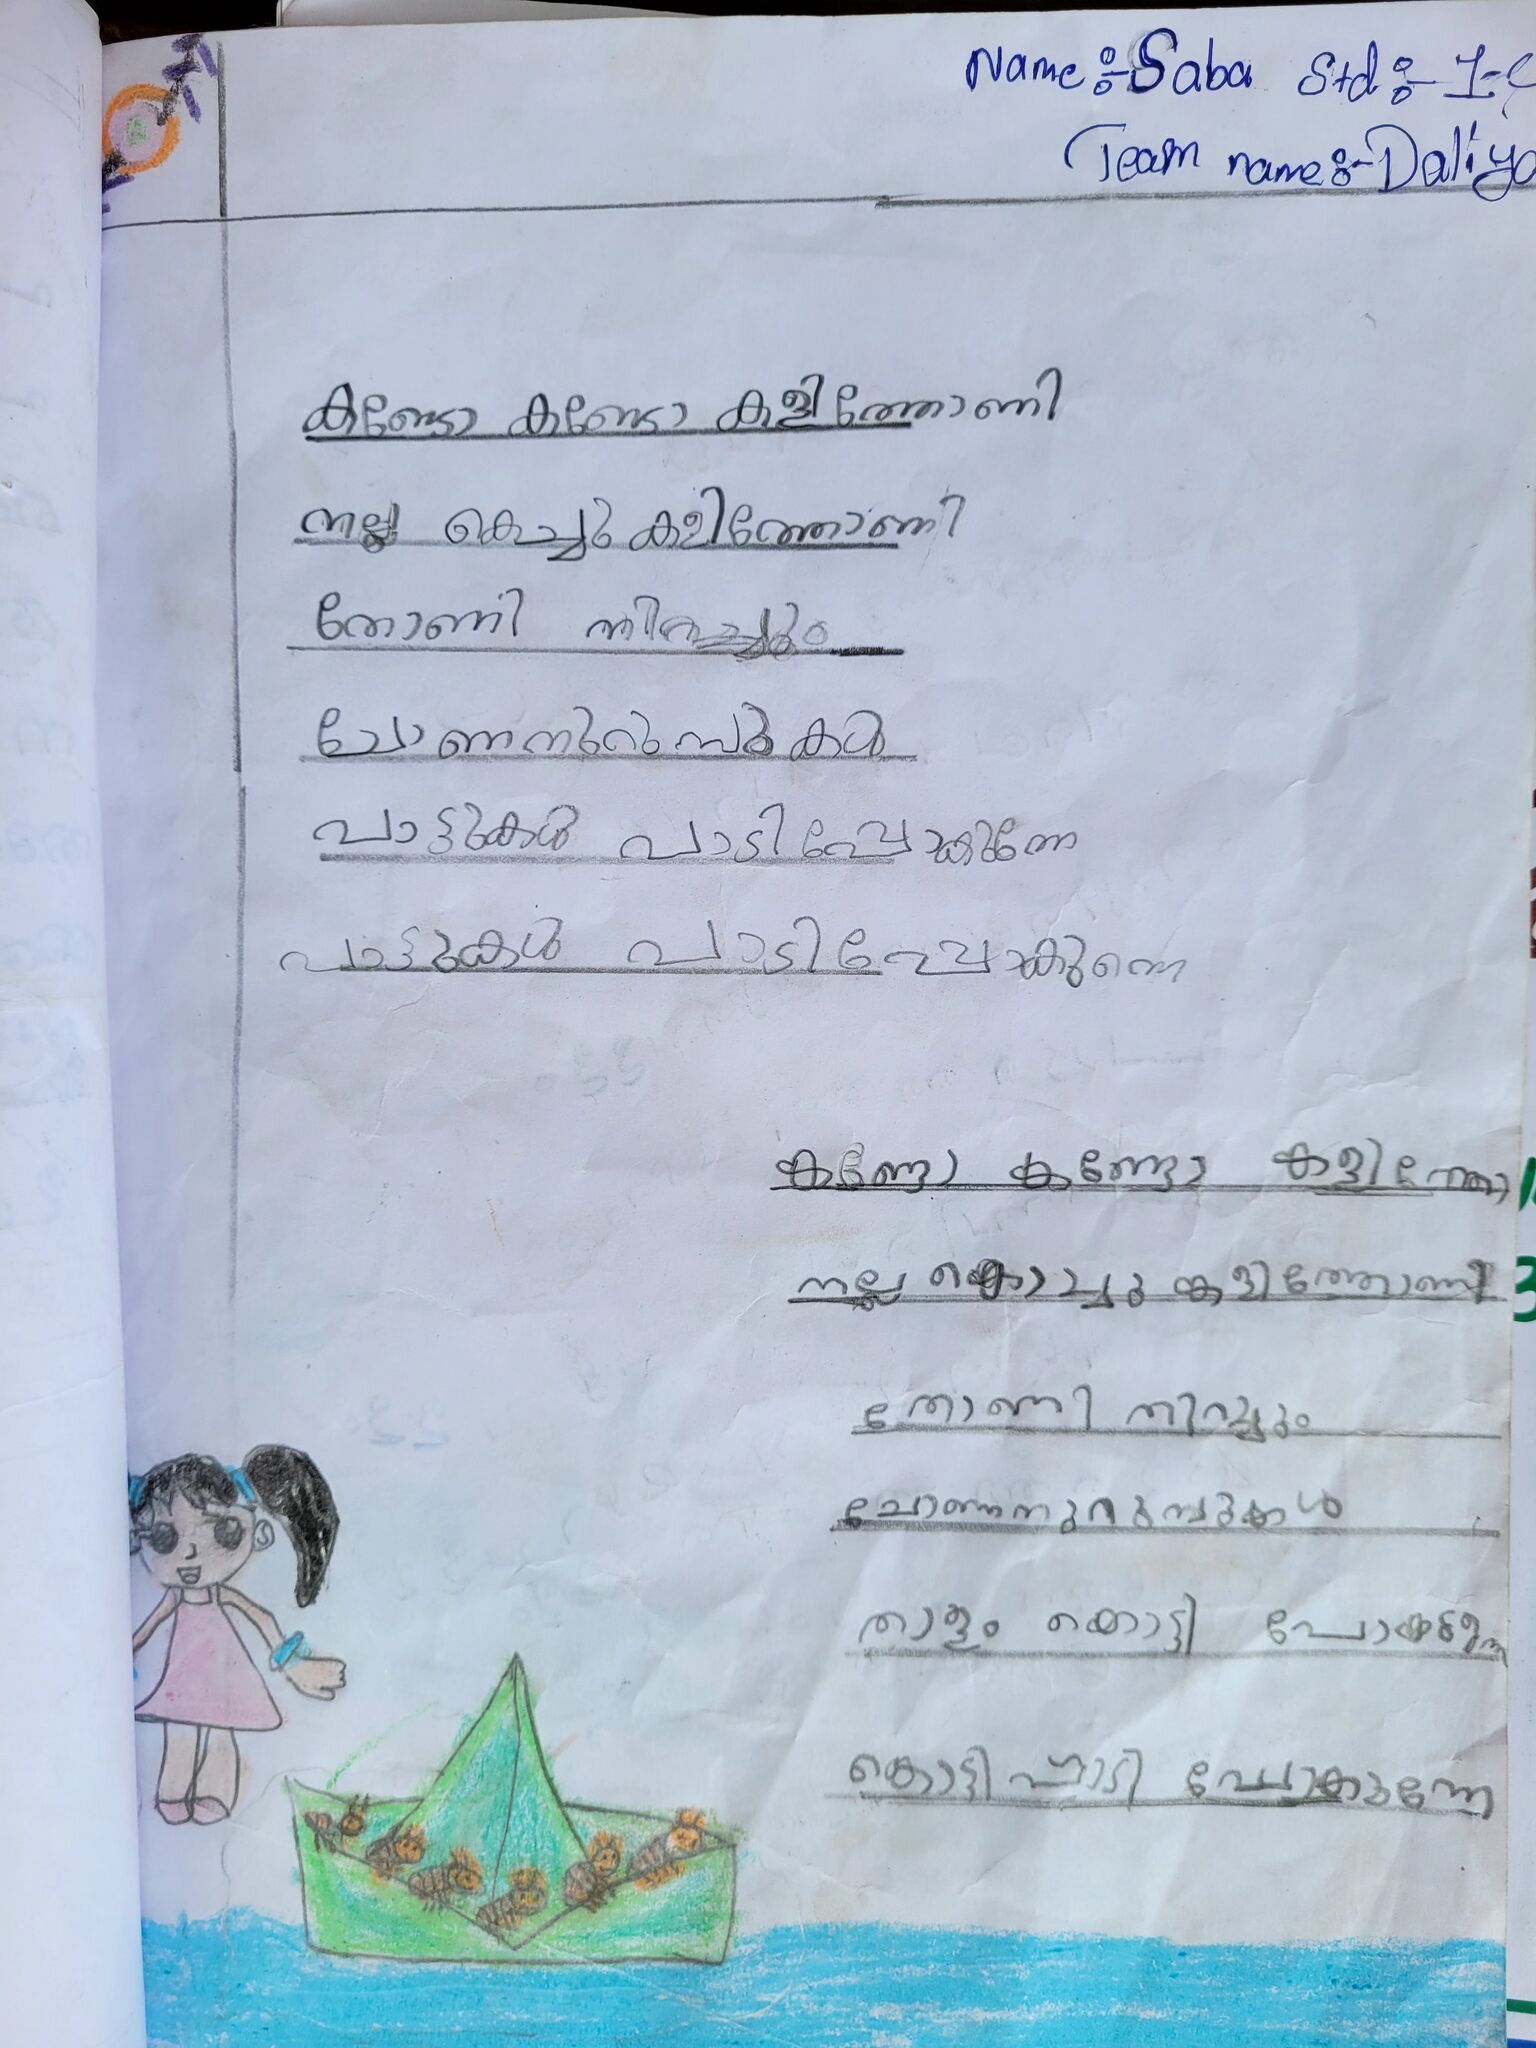 Name:- Saba Std:- 1-C
Team name:- Daliya
കണ്ടോ കണ്ടോ കളിത്തോണി
നല്ല കൊച്ചു കളിത്തോണി
തോണി നിറച്ചും
ചോണനുറുമ്പുകൾ
പാട്ടുകൾ പാടിപ്പോകുന്നേ
പാട്ടുകൾ പാടിപ്പോകുന്നെ
കണ്ടോ കണ്ടോ കളിത്തോ
നല്ല കൊച്ചു കളിത്തോണി
തോണി നിറച്ചും
ചോണനുറുമ്പുകൾ
താളം കൊട്ടി
കൊട്ടിപ്പാടി പോകുന്നേ